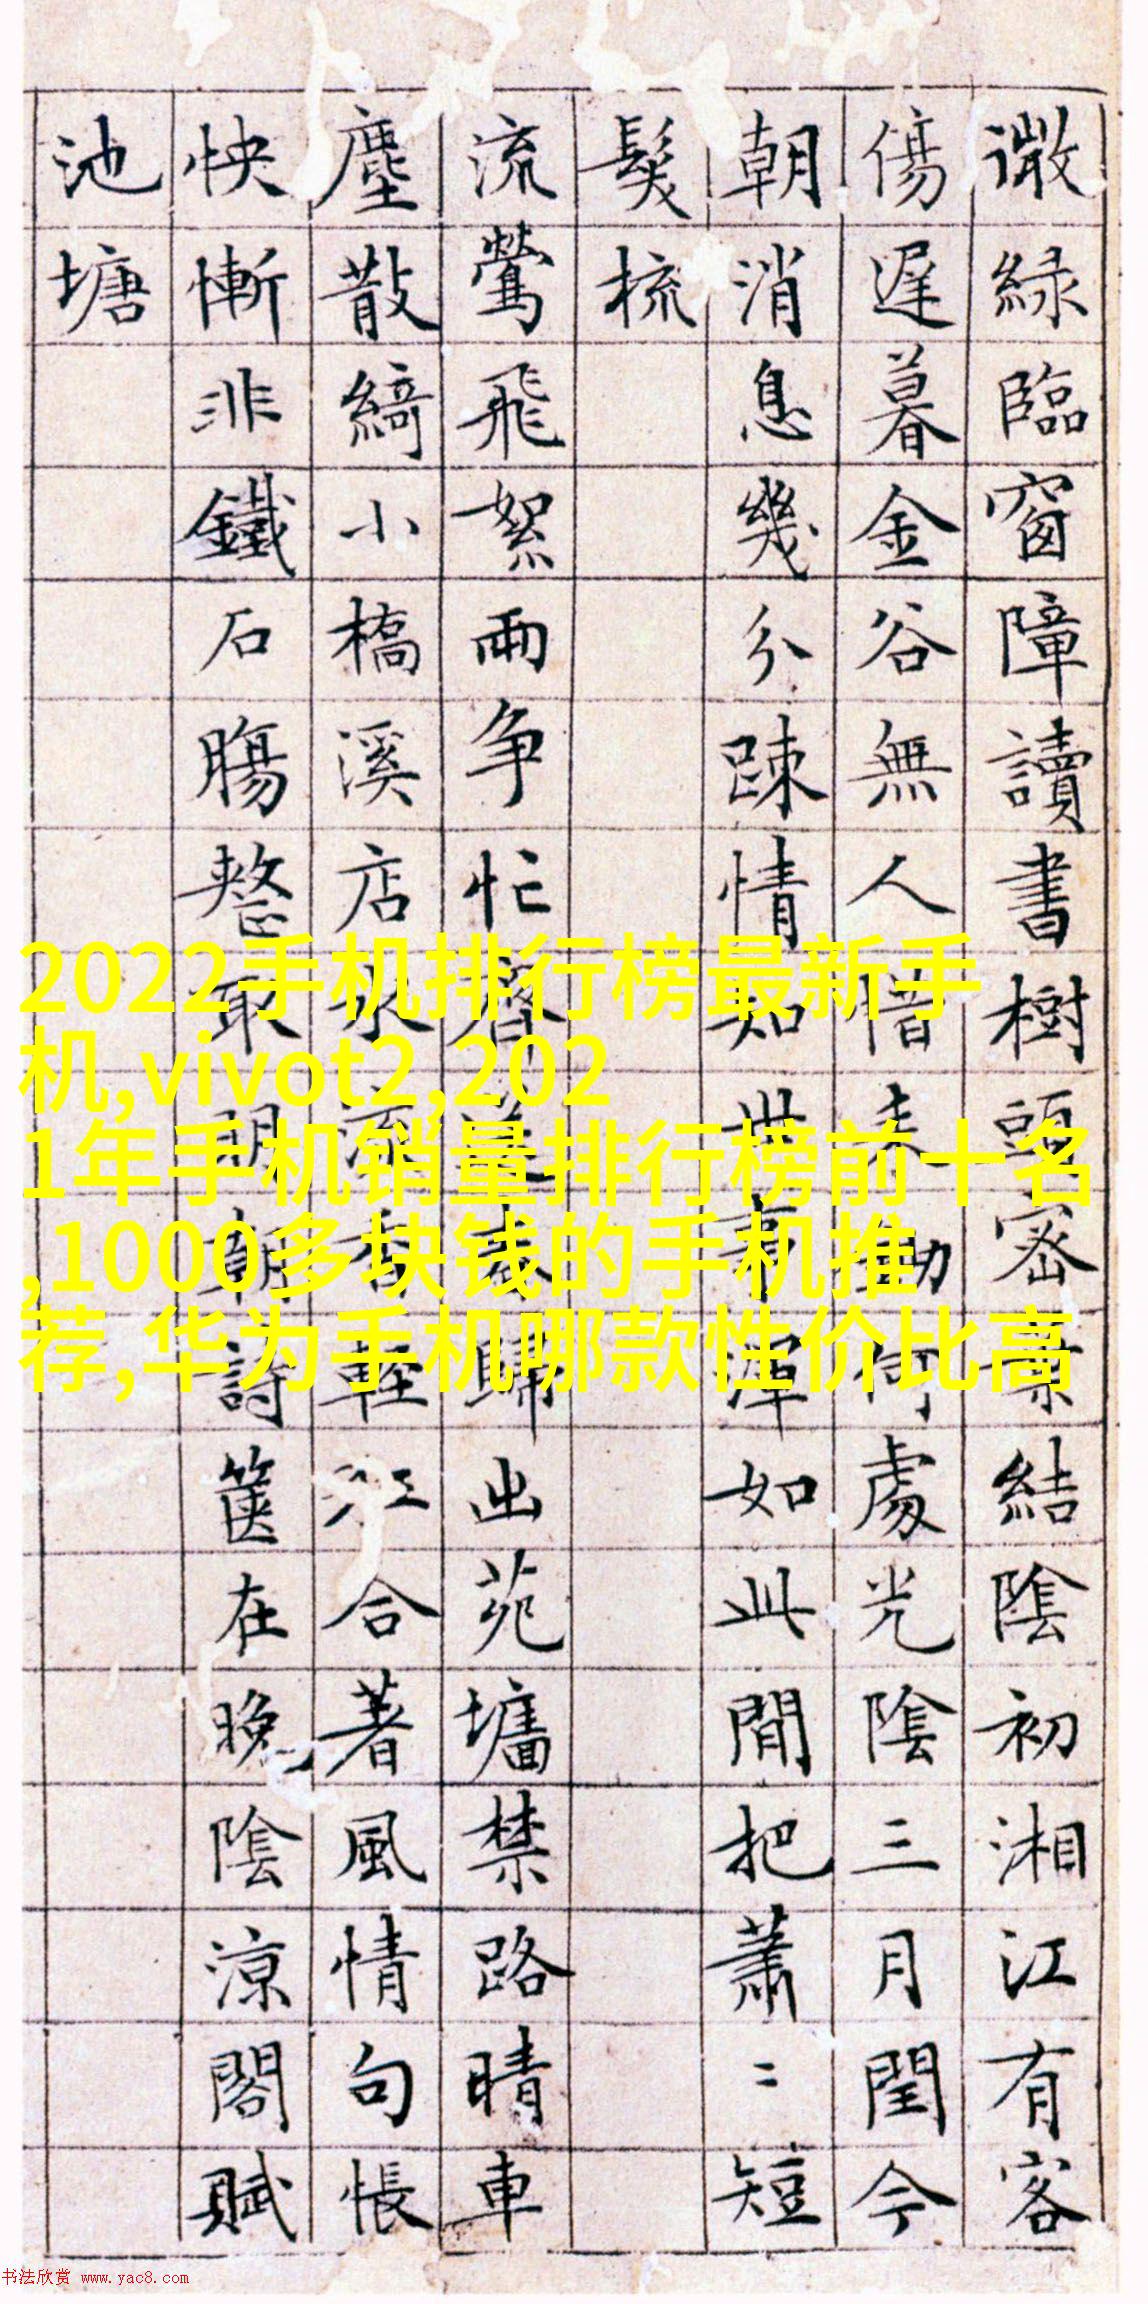 微綠臨窗障讀書樹頭密葉結陰初湘江有客
傷遲暮金谷無人惜何處光陰三月閏今
朝消息幾分踈情知世事渾如此間把蕭〻短
鬂梳
流鶯飛絮兩争忙春歸出苑墻禁路晴車
塵散綺小橋溪店水流香輕江合著風情句悵
怏慚非鐵石腸整取明朝詩箧在晚陰涼閣賦
池塘
2022手机排行榜最新手
机,vivot2,202
1年手机销量排行榜前十名
,1000多块钱的手机推
荐,华为手机哪款性价比高
书法欣赏 www.yac8.com